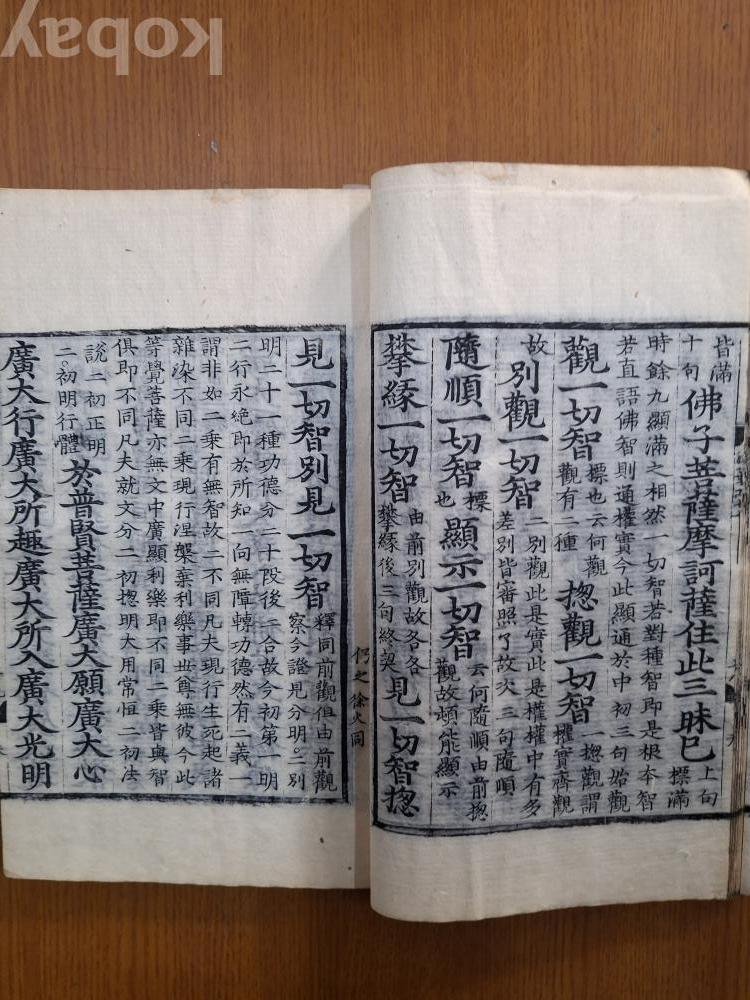 皆滿
十句佛子菩薩摩訶薩住此三昧已上句
標滿
時餘九顯滿之相然一切智若對種智即是根夲智
若直語佛智則通權實今此顯通於中初三句始觀
觀一切智標也云何觀
觀有二種揔觀一切智一揔觀謂
權實齊觀
故別觀一切智二別觀此是實此是權權中有多
差別皆審照了故次三句隨順
隨順一切智標
也顯示一切智云何隨順由前揔
觀故頓能顯示
攀緣一切智由前別觀故各各
攀緣後三句終契見一切智揔
見一切智別見一切智釋同前觀但由前觀
察今證見分明。二別
明二十一種功德分二十段後二合故今初第一明
二行永絶即於所知一向無障轉功德然有二義一
謂非如二乗有無智故二不同凡夫現行生死起諸
雜染不同二乗現行涅槃棄利樂事世尊無彼今此
等覺菩薩亦無文中廣顯利樂即不同二乗皆與智
俱即不同凡夫就文分二初揔明大用常恒二初法
說二初正明
二。初明行體於普賢菩薩廣大願廣大心
廣大行廣大所趣廣大所入廣大光明
仍之 徐火同
Kobay